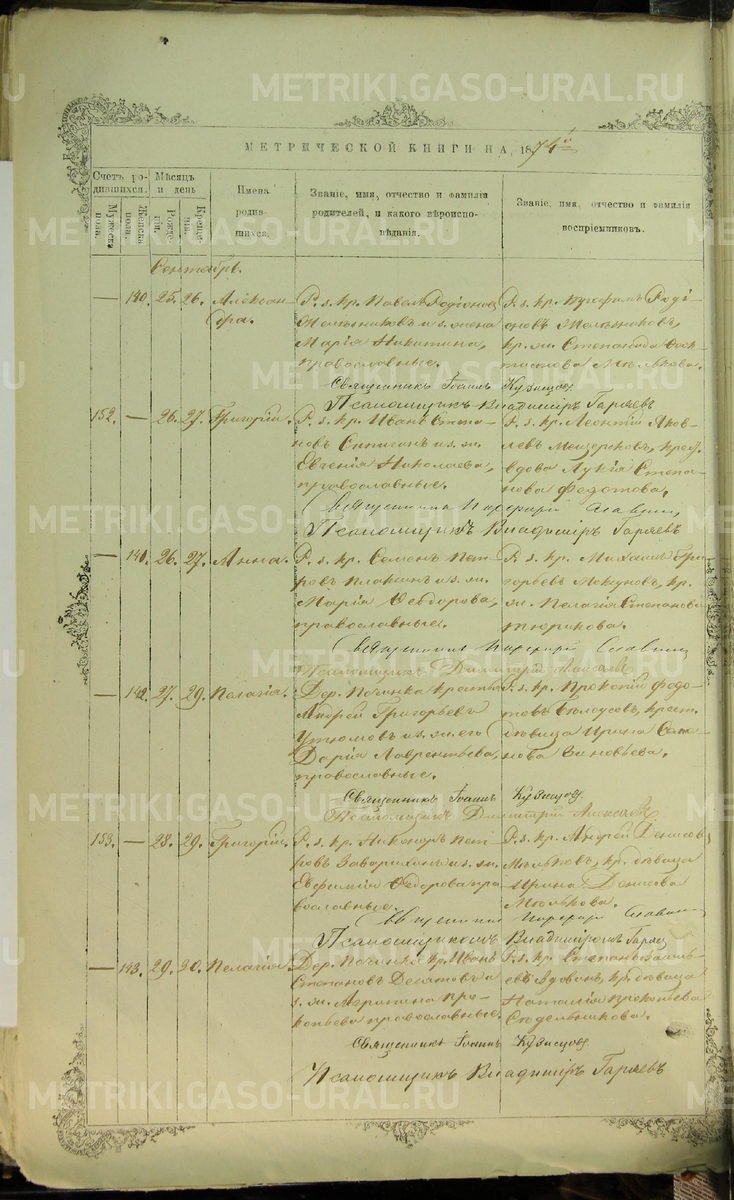 METRIKI.GASO-URAL.RU
МЕТРИЧЕСКОЙ КНИГИ НА 1874й
Счетъ родившихся.
Мужеска пола.
Женска пола.
Мѣсяцъ и день
Рожденія.
Крещенія.
Имена родившихся.
Званіе, имя, отчество и фамилія родителей, и какого вѣроисповѣданія.
Званіе, имя, отчество и фамилія воспріемниковъ.
Сентябрь.
— 140. 25. 26. Александра.
Р. з. кр. Павелъ Родіоновъ
Мельниковъ и з. жена
Марія Никитина,
православные.
Р. з. кр. Родіоновъ Мельниковъ,
кр. ж. Степанида
Мелькова.
Священникъ Іоаннъ Кузнецовъ
Псаломщикъ Владиміръ Гаряевъ
152. — 26. 27. Григорій.
Р. з. кр. Иванъ Степановъ
и з. ж.
Евгенія Николаева,
православные.
Р. з. кр. Леонтій Яковлевъ
Мещеряковъ, крест.
вдова Лукія Степанова
Федотова.
Священникъ Порфирій Славнинъ
Псаломщикъ Владиміръ Гаряевъ
— 141. 26. 27. Анна.
Р. з. кр. Семенъ Петровъ
и з. ж.
Марія Ѳедорова,
православные.
Р. з. кр. Михаилъ Григорьевъ
Мокуновъ, кр.
ж. Пелагія Степанова
Тюрикова.
Священникъ Порфирій Славнинъ
Псаломщикъ Димитрій Алексѣевъ
— 142. 27. 29. Пелагія.
Дер. Починка крест.
Андрей Григорьевъ
Утюмовъ и з. ж. его
Дарія Лаврентьева,
православные.
Р. з. кр. Прокопій Федотовъ
Бѣлоусовъ, крест.
дѣвица Ирина
Зиновьева.
Священникъ Іоаннъ Кузнецовъ
Псаломщикъ Димитрій Алексѣевъ
153. — 28. 29. Григорій.
Р. з. кр. Никаноръ Петровъ
и з. ж.
Евфимія Ѳедорова православные.
Р. з. кр. Андрей Денисовъ
Мельковъ, кр. дѣвица
Ирина Денисова
Мелькова.
Священникъ Порфирій Славнинъ
Псаломщикомъ Владиміромъ Гаряев
— 143. 29. 30. Пелагія.
Дер. Починка кр. Иванъ
Степановъ Десятовъ и
з. ж. Марина Прокопьева православные.
Р. з. кр. Степанъ Васильевъ
Вдовинъ, кр. дѣвица
Наталія Прокопьева
Сѣдельникова.
Священникъ Іоаннъ Кузнецовъ
Псаломщикъ Владиміръ Гаряевъ